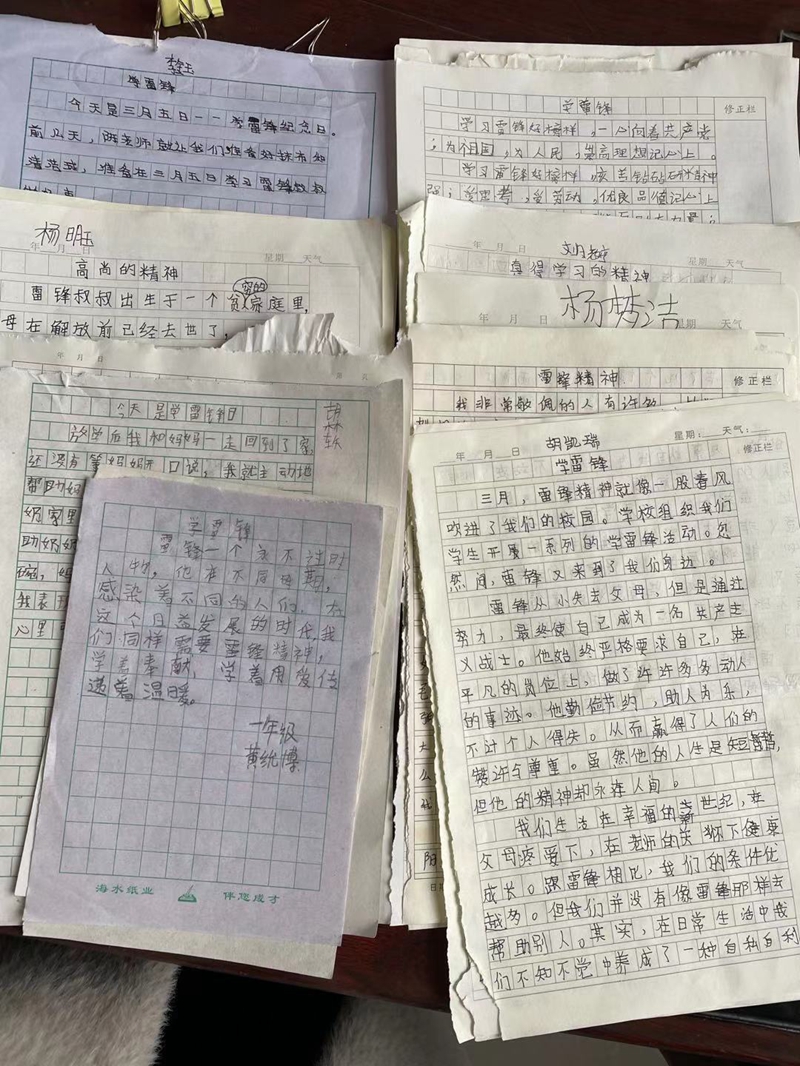 学雷锋
今天是三月五日一一学雷锋纪念日。
前几天,
老师就让我们准备好抹布和
准备在三月五日学习雷锋叔叔
杨明玉
年 月 日 星期 天气
高尚的精神
雷锋叔叔出生于一个贫穷的家庭里,
母在解放前已经去世了,
年 月 日
今天是学雷锋日
胡林轩
放学后我和妈妈一走回到了家,
还没有等妈妈开口说,我就主动地
帮助奶
奶家里
助奶奶
碗,
我表
心里
学雷锋
雷锋一个永不过时
人物,他在不同时期,
感染着不同的人们,在
这个日益发展的时代,我
们同样需要雷锋精神,
学着奉献,学着用爱传
递着温暖。
一年级
黄统博
海水纸业 伴您成才
学雷锋
修正栏
学习雷锋好榜样,一心向着共产党
;为祖国,为人民,崇高理想记心上。
学习雷锋好榜样,
精神
强;爱思考,爱劳动,优良品德记心上
年 月 日 星期 天气
真得学习的精神
杨梦洁
年 月 日 天气
雷锋精神
修正栏
我非常敬佩的人有许多,
年 月 日 胡凯瑞 星期: 天气:
学雷锋 修正栏
三月,雷锋精神就像一股春风
吹进了我们的校园。学校组织我们
学生开展一系列的学雷锋活动。忽
然间,雷锋又来到了我们身边。
雷锋从小失去父母,但是通过
努力,最终使自己成为一名共产主
义战士。他始终严格要求自己,在
平凡的岗位上,做了许许多多动人
的事迹。他勤俭节约,助人为乐,
不计个人得失。从而赢得了人们的
赞许与尊重。虽然他的人生是短暂,
但他的精神却永在人间。
我们生活在幸福的新世纪,在
父母疼爱下,在老师的关怀下健康
成长。跟雷锋相比,我们的条件优
越多。但我们并没有像雷锋那样去
帮助别人。其实,在日常生活中我
们不知不觉中养成了一种自私自利